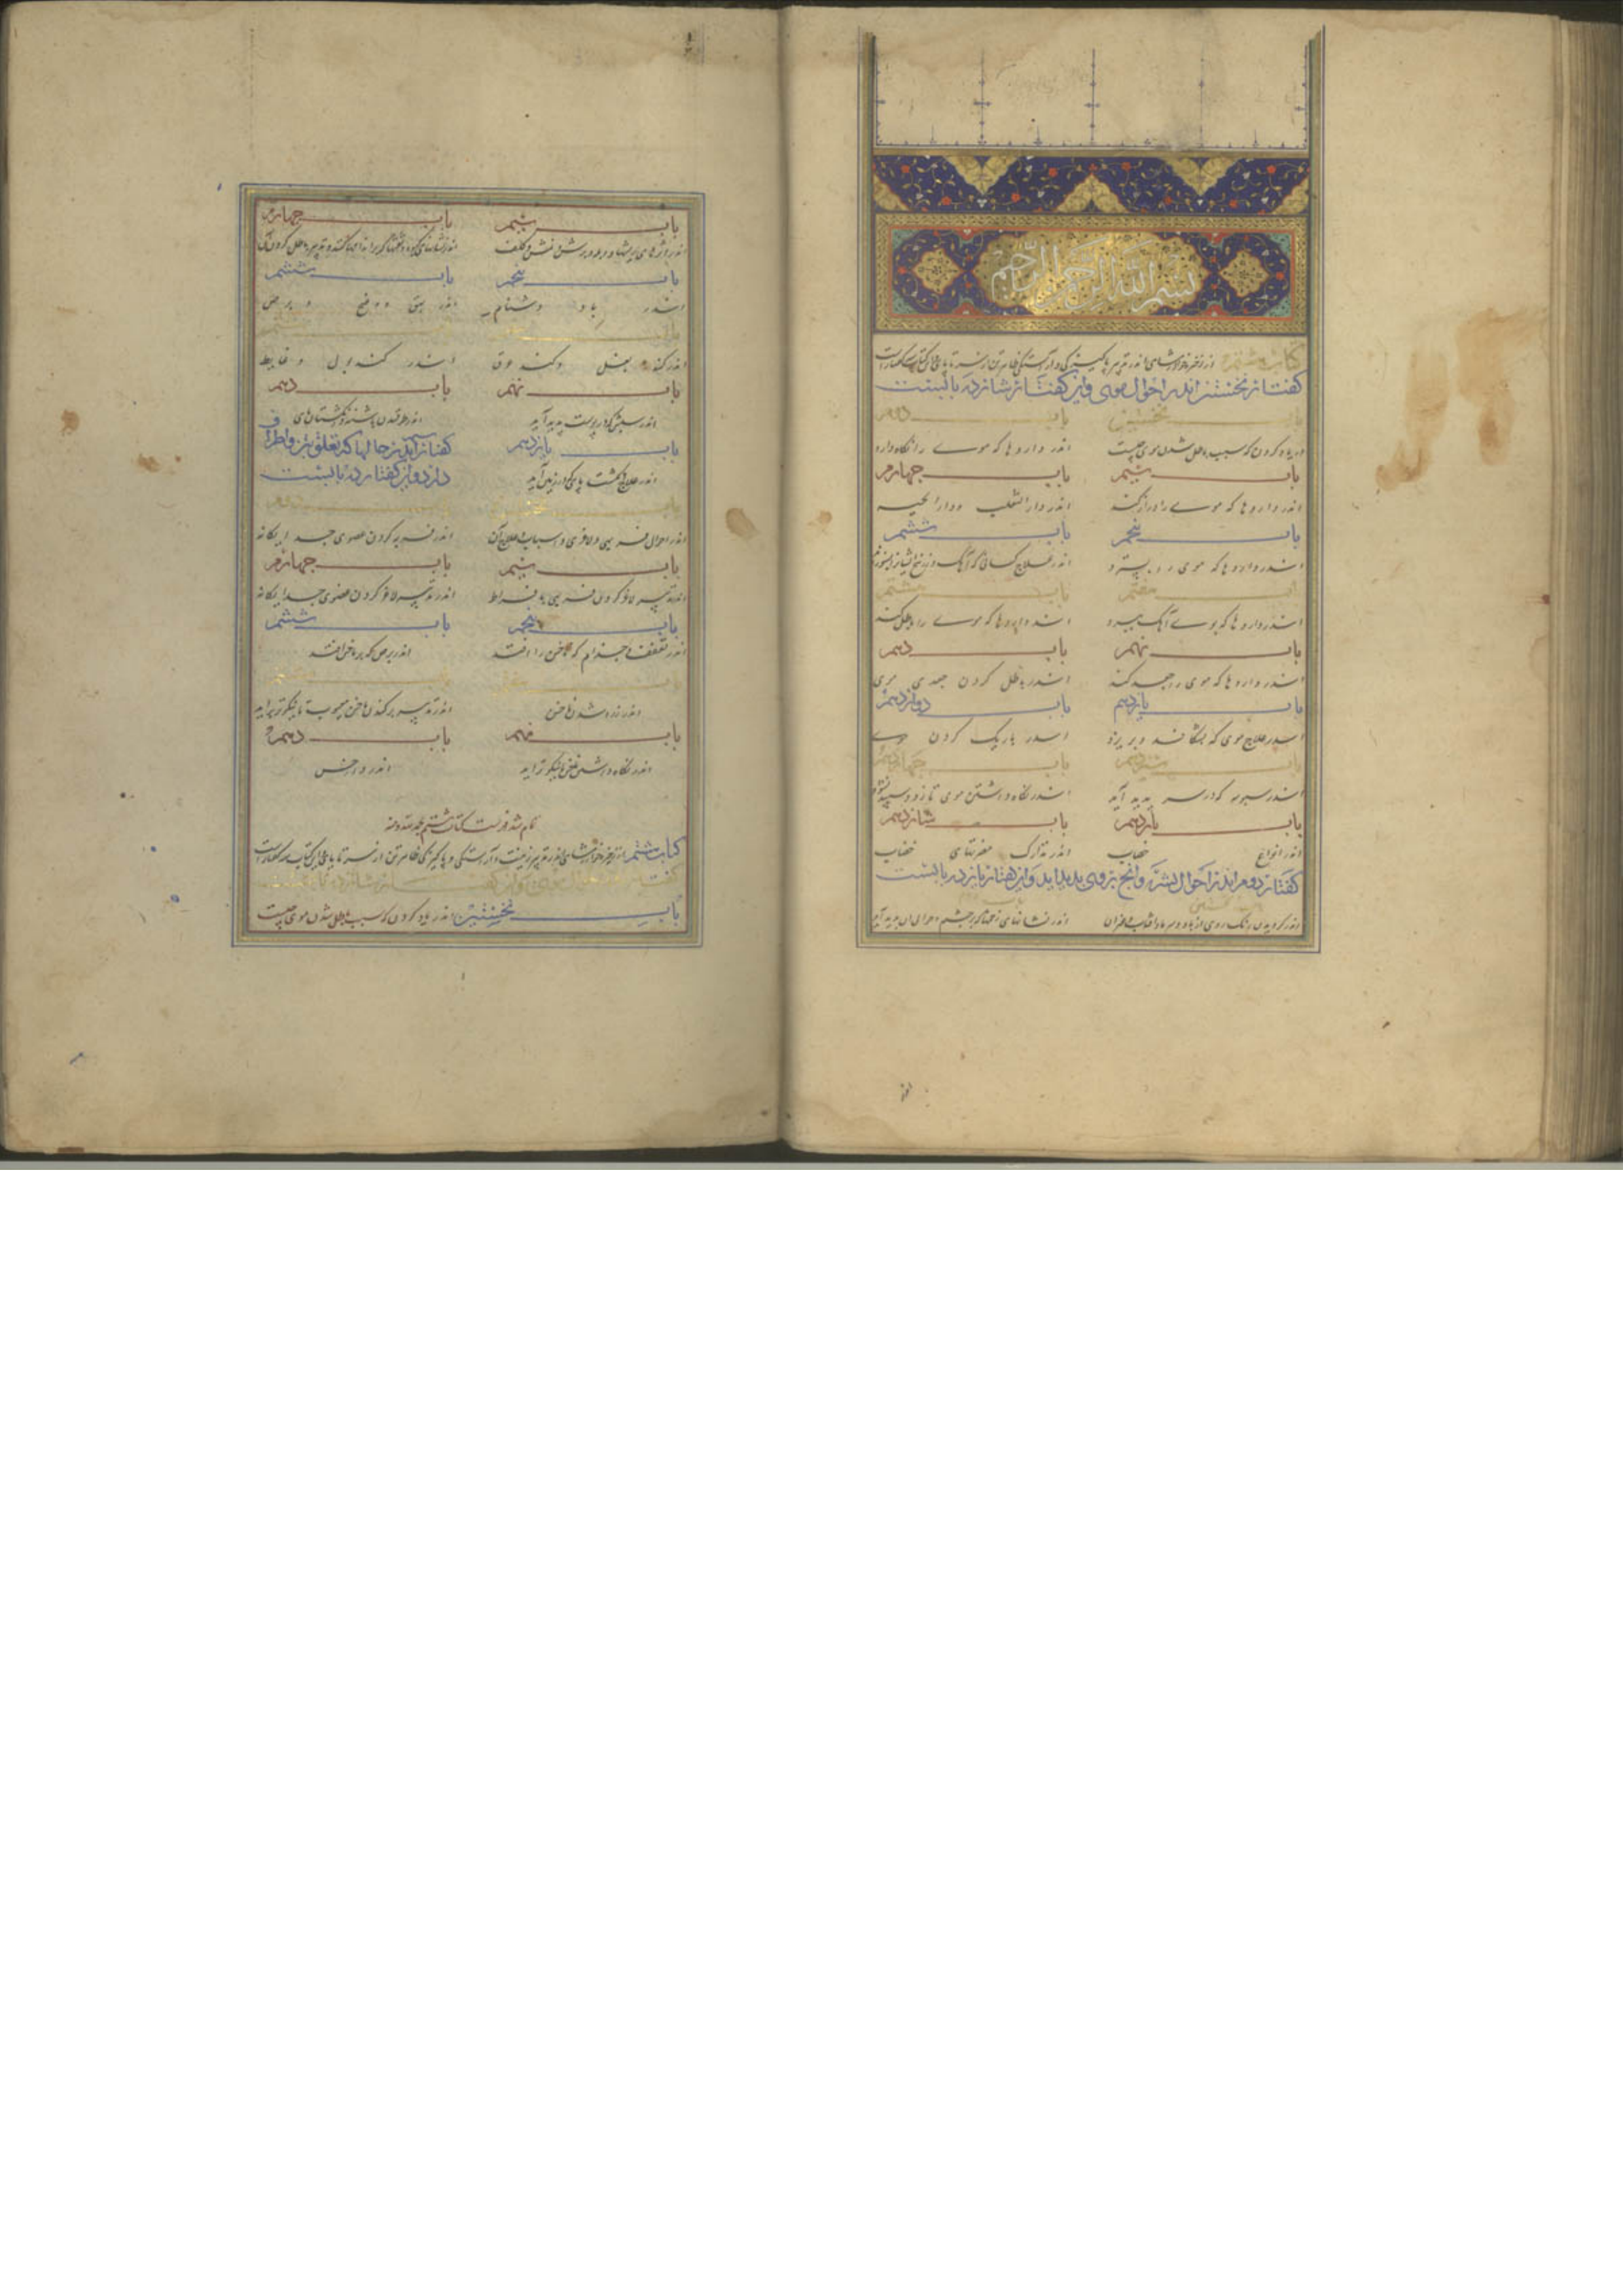 بسم الله الرحمن الرحیم
کتاب هشتم از ذخیره خوارزمشاهی اندر تدبیر پاکیزگی و آراستگی ظاهر تن از سر تا پای و این کتاب سه گفتار است
گفتار نخستین اندر احوال موی و این گفتار شانزده بابست
باب نخستین باب دوم
اندر یاد کردن که سبب باطل شدن موی چیست اندر داروها که موی را نگاه دارد
باب سیم باب چهارم
اندر داروها که موی را دراز کند اندر داء الثعلب و داء الحیه
باب پنجم باب ششم
اندر داروها که موی را بسترد اندر علاج کسانی که آهک و زرنیخ ایشان را بسوزد
باب هفتم باب هشتم
اندر داروها که بوی آهک ببرد اندر داروها که موی را باطل کند
باب نهم باب دهم
اندر داروها که موی را جعد کند اندر باطل کردن جعدی موی
باب یازدهم باب دوازدهم
اندر علاج موی که بشکافد و بریزد اندر باریک کردن موی
باب سیزدهم باب چهاردهم
اندر سبوسه که در سر پدید آید اندر نگاه داشتن موی تا زود سپید نشود
باب پانزدهم باب شانزدهم
اندر انواع خضاب اندر تدارک مضرتهای خضاب
گفتار دوم اندر احوال بشره و انچ بر وی پدید اید و این گفتار یازده بابست
باب نخستین باب دوم
اندر گردیدن رنگ روی از باد و سرما و افتاب و غیر آن اندر نشانهای زخمها که بر چشم
باب سیم باب چهارم
اندر و برش و نمش و کلف اندر نشانهای و تدبیر باطل کردن آن
باب پنجم باب ششم
اندر باد دشنام اندر بهق و وضح و برص
باب باب هشتم
اندر گنده بغل و گند عرق اندر گند بول و غایط
باب نهم باب دهم
اندر سپش که در پوست پدید آید اندر طرقیدن پاشنه و انگشتان پای
باب یازدهم گفتار سیم اندر حالها که تعلق بتن و اطراف
اندر علاج انگشت پای که در زیر آید دارد و این گفتار ده بابست
باب نخستین باب دوم
اندر احوال فربهی و لاغری و اسباب و علاج آن اندر فربه کردن عضوی جداگانه
باب سیم باب چهارم
اندر تدبیر لاغر کردن فربهی بافراط اندر تدبیر لاغر کردن عضوی جداگانه
باب پنجم باب ششم
اندر تقفف و جذام که ناخن را افتد اندر برص که بر ناخن افتد
باب هفتم باب هشتم
اندر زرد شدن ناخن اندر تدبیر برکندن ناخن معیوب تا نیکوتر براید
باب نهم باب دهم
اندر نگاه داشتن ناخن تا نیکوتر اید اندر داخس
تمام شد فهرست کتاب هشتم بحمد الله و منه
کتاب هشتم از ذخیره خوارزمشاهی اندر تدبیر زینت و آراستگی و پاکیزگی ظاهر تن از سر تا پای و این کتاب سه گفتار است
گفتار نخستین اندر احوال موی و این گفتار شانزده بابست
باب نخستین اندر یاد کردن که سبب باطل شدن موی چیست